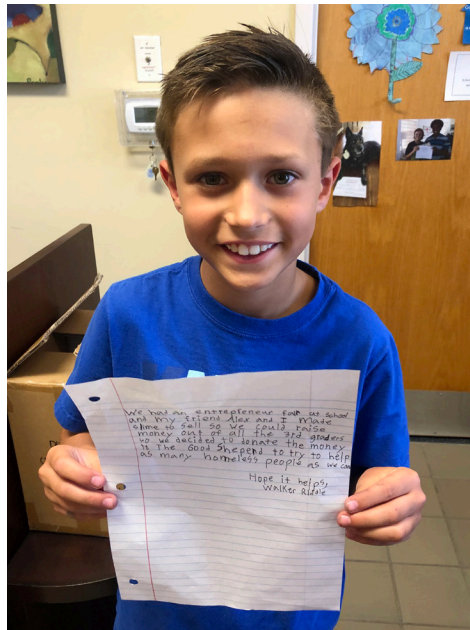 We had an entrepreneur Fair at school
and my friend Alex and I made
slime to sell so we could raise
money out of all the 3rd graders
so we decided to donate the money
to The Good Sheperd to try to help
as many homeless people as we can
Hope it helps,
Walker Riddle